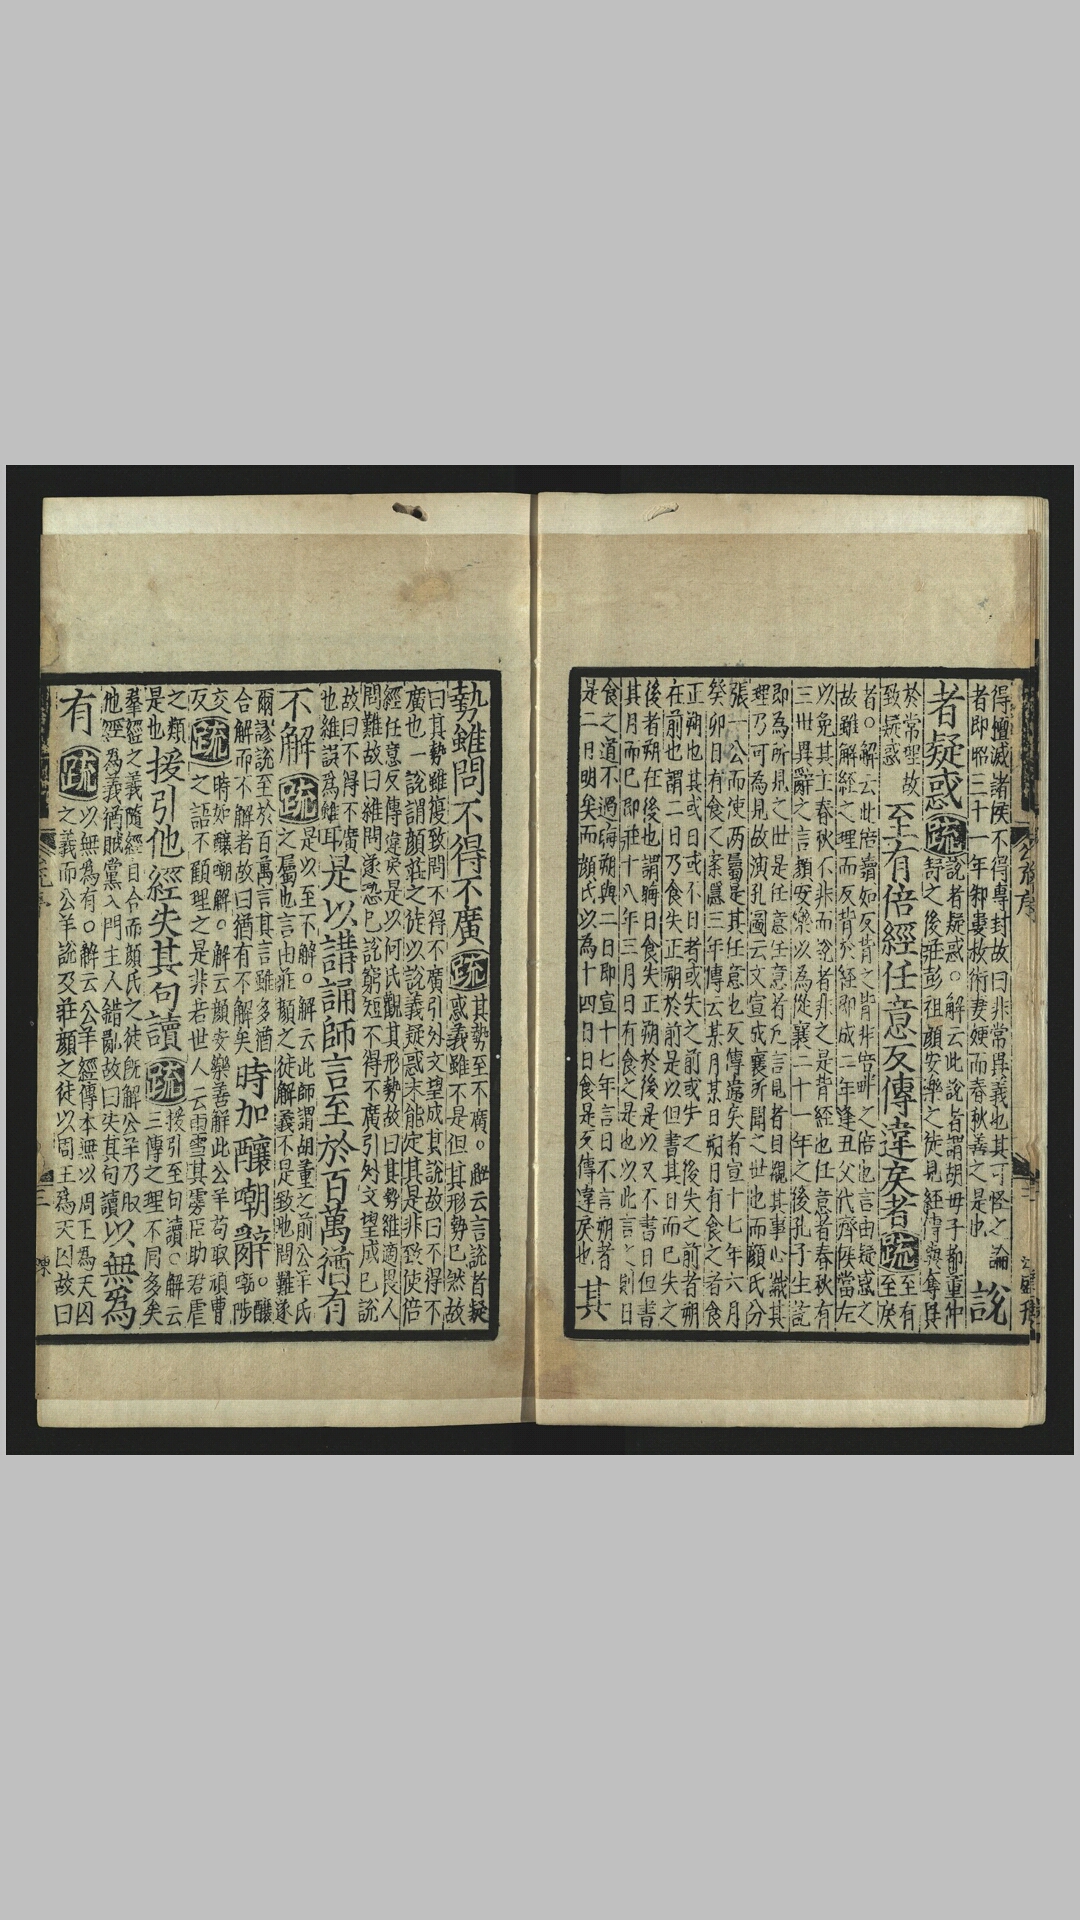 得擅滅諸侯不得專封故曰非常異義也其可怪之論
者即昭三十一年邾婁叔術妻嫂而春秋善之是也
說
者疑惑 疏
說者疑惑○解云此說皆謂胡毋子都董仲
舒之後莊彭祖顏安樂之徒見經傳與奪異
於常理故
致疑惑
至有倍經任意反傳違戾者 疏
至有
至戾
者○解云此倍讀如反背之背非倍畔之倍也言由疑惑之
故雖解經之理而反背於經即成二年逢丑父代齊侯當左
以免其主春秋不非而說者非之是背經也任意者春秋有
三世異辭之言顏安樂以為從襄二十一年之後孔子生訖
即為所見之世是任意任意者凡言見者目覩其事心識其
理乃可為見故演孔圖云文宣成襄所聞之世也而顏氏分
張一公而使两屬是其任意也反傳違戾者宣十七年六月
癸卯日有食之案隱三年傳云某月某日朔日有食之者食
正朔也其或日或不日者或失之前或失之後失之前者朔
在前也謂二日乃食失正朔於前是以但書其日而已失之
後者朔在後也謂晦日食失正朔於後是以又不書日但書
其月而已即莊十八年三月日有食之是也以此言之則日
食之道不過晦朔與二日即宣十七年言日不言朔者
是二日明矣而顏氏以為十四日日食是反傳違戾也
其
勢雖問不得不廣 疏
其勢至不廣○解云言說者疑
惑義雖不是但其形勢已然故
曰其勢雖復致問不得不廣引外文望成其說故曰不得不
廣也一說謂顏莊之徒以說義疑惑未能定其是非致使倍
經任意反傳違戾是以何氏觀其形勢故曰其勢維適畏人
問難故曰維問遂恐已說窮短不得不廣引外文望成已說
故曰不得不廣
也維誤為雖耳
是以講誦師言至於百萬猶有
不解 疏
是以至不解○解云此師謂胡董之前公羊氏
之屬也言由莊顏之徒解義不是致他問難遂
爾謬說至於百萬言其言雖多猶
合解而不解者故曰猶有不解矣
時加釀嘲辭
○釀
嘲陟
交
反
疏
時加釀嘲辭○解云顏安樂等解此公羊苟取頑曹
之語不顧理之是非若世人云雨雪其雱臣助君虐
之類
是也
援引他經失其句讀 疏
援引至句讀○解云
三傳之理不同多矣
羣經之義隨經自合而顏氏之徒既解公羊乃取
他經為義猶賊黨入門主人錯亂故曰失其句讀
以無為
有 疏
以無為有○解云公羊經傳本無以周王為天囚
之義而公羊說及莊顏之徒以周王為天囚故曰